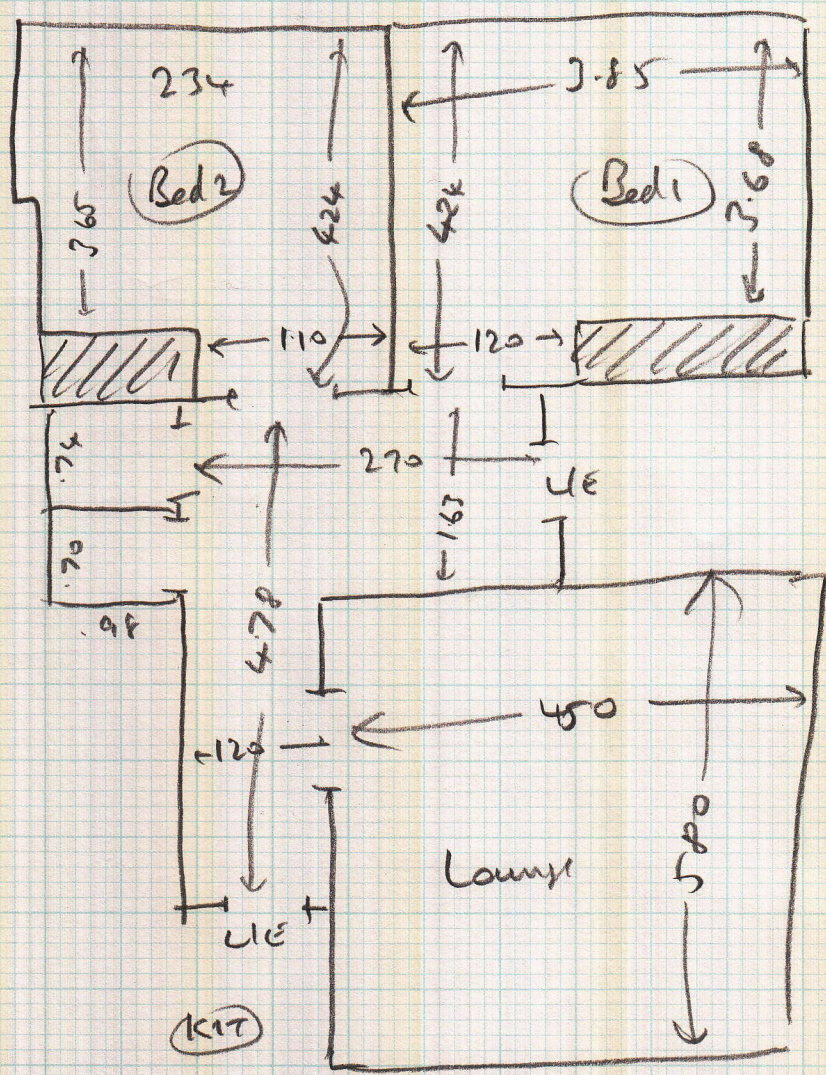 234
3.85
Bed 2
Bed 1
365
424
424
3.68
110
120
.74
270
L/E
1.63
.70
.98
4.78
450
120
580
Lounge
L/E
KIT